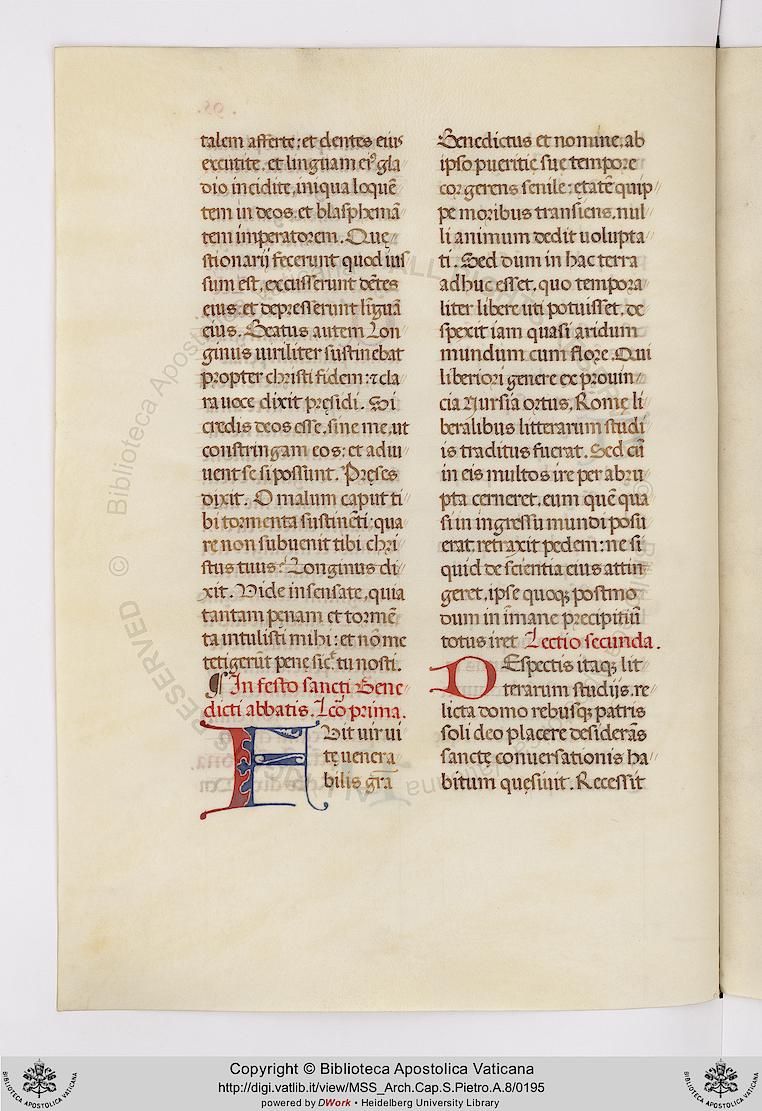 talem afferte: et dentes eius
excutite. et linguam ei⁹ gla
dio incidite, iniqua loquē
tem in deos. et blasphemā
tem imperatorem. Quę
stionarij fecerunt quod ius
sum est, excusserunt dētes
eius. et depresserunt linguā
eius. Beatus autem Lon
ginus uiriliter sustinebat
propter christi fidem: ⁊ cla
ra uoce dixit pręsidi. Si
credis deos esse, sine me, ut
constringam eos: et adiu
uent se si possunt. Pręses
dixit. O malum caput ti
bi tormenta sustinēti: qua
re non subuenit tibi chri
stus tuus? Longinus di
xit. Vide insensate, quia
tantam pęnam et tormē
ta intulisti mihi: et nō me
tetigerūt penę sic̄ tu nosti.
¶ In festo sancti Bene
dicti abbatis. Lc̄o prima.
FVit uir ui
tę uenera
bilis gr̄a
Benedictus et nomine. ab
ipso pueritię suę tempore
cor gerens senile: ętatē quip
pe moribus transiens. nul
li animum dedit uolupta
ti. Sed dum in hac terra
adhuc esset. quo tempora
liter libere uti potuisset. de
spexit iam quasi aridum
mundum cum flore. Qui
liberiori genere ex prouin
cia Nursia ortus, Romę li
beralibus litterarum studi
is traditus fuerat. Sed cū
in eis multos ire per abru
pta cerneret. eum quē qua
si in ingressu mundi posu
erat. retraxit pedem: ne si
quid de scientia eius attin
geret, ipse quoq; postmo
dum in īmane precipitiū
totus iret. Lectio secunda.
DEspectis itaq; lit
terarum studijs. re
licta domo rebusq; patris
soli deo placere desiderās
sanctę conuersationis ha
bitum quęsiuit. Recessit
Copyright © Biblioteca Apostolica Vaticana
http://digi.vatlib.it/view/MSS_Arch.Cap.S.Pietro.A.8/0195
powered by DWork • Heidelberg University Library